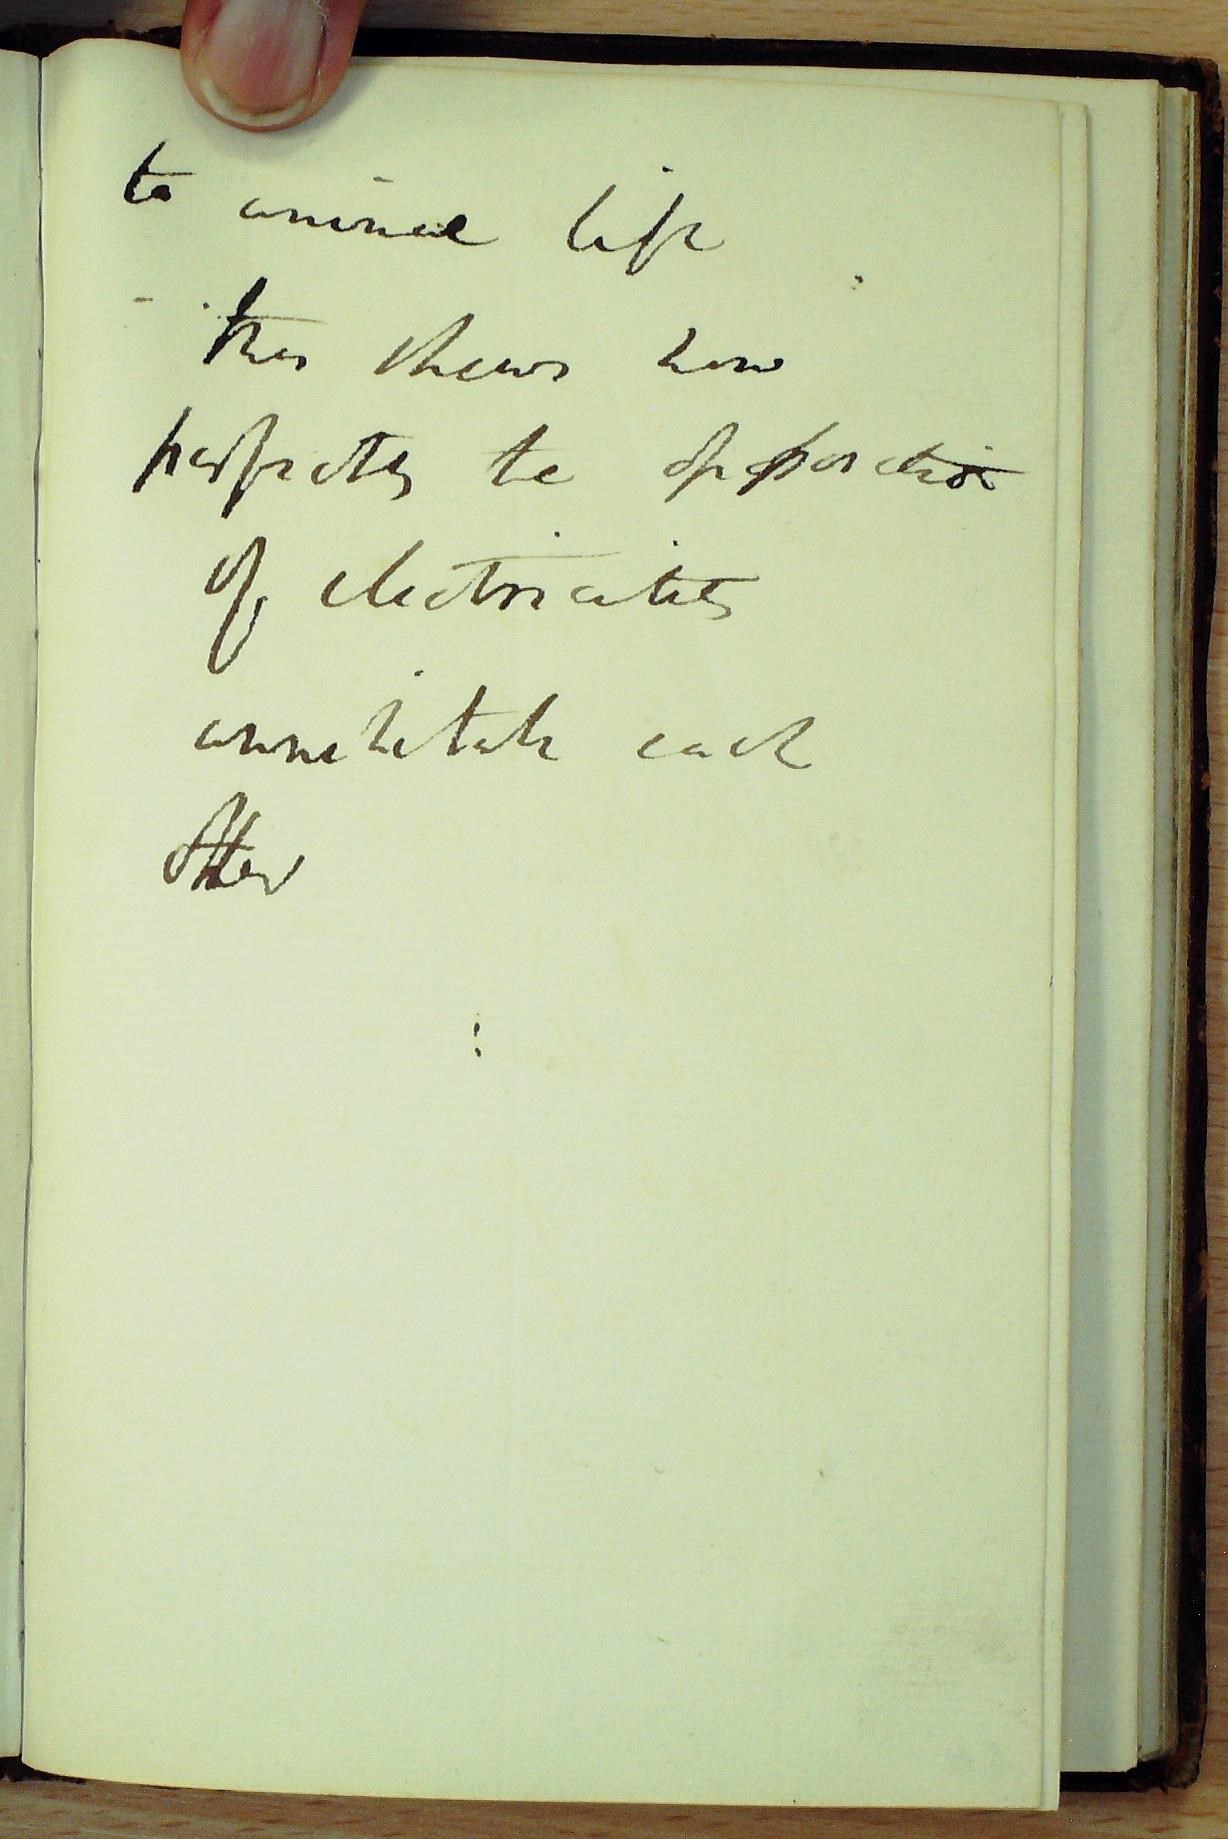 to animal life
this shews how
perfectly the opposite
of electricities
annihilate each
other